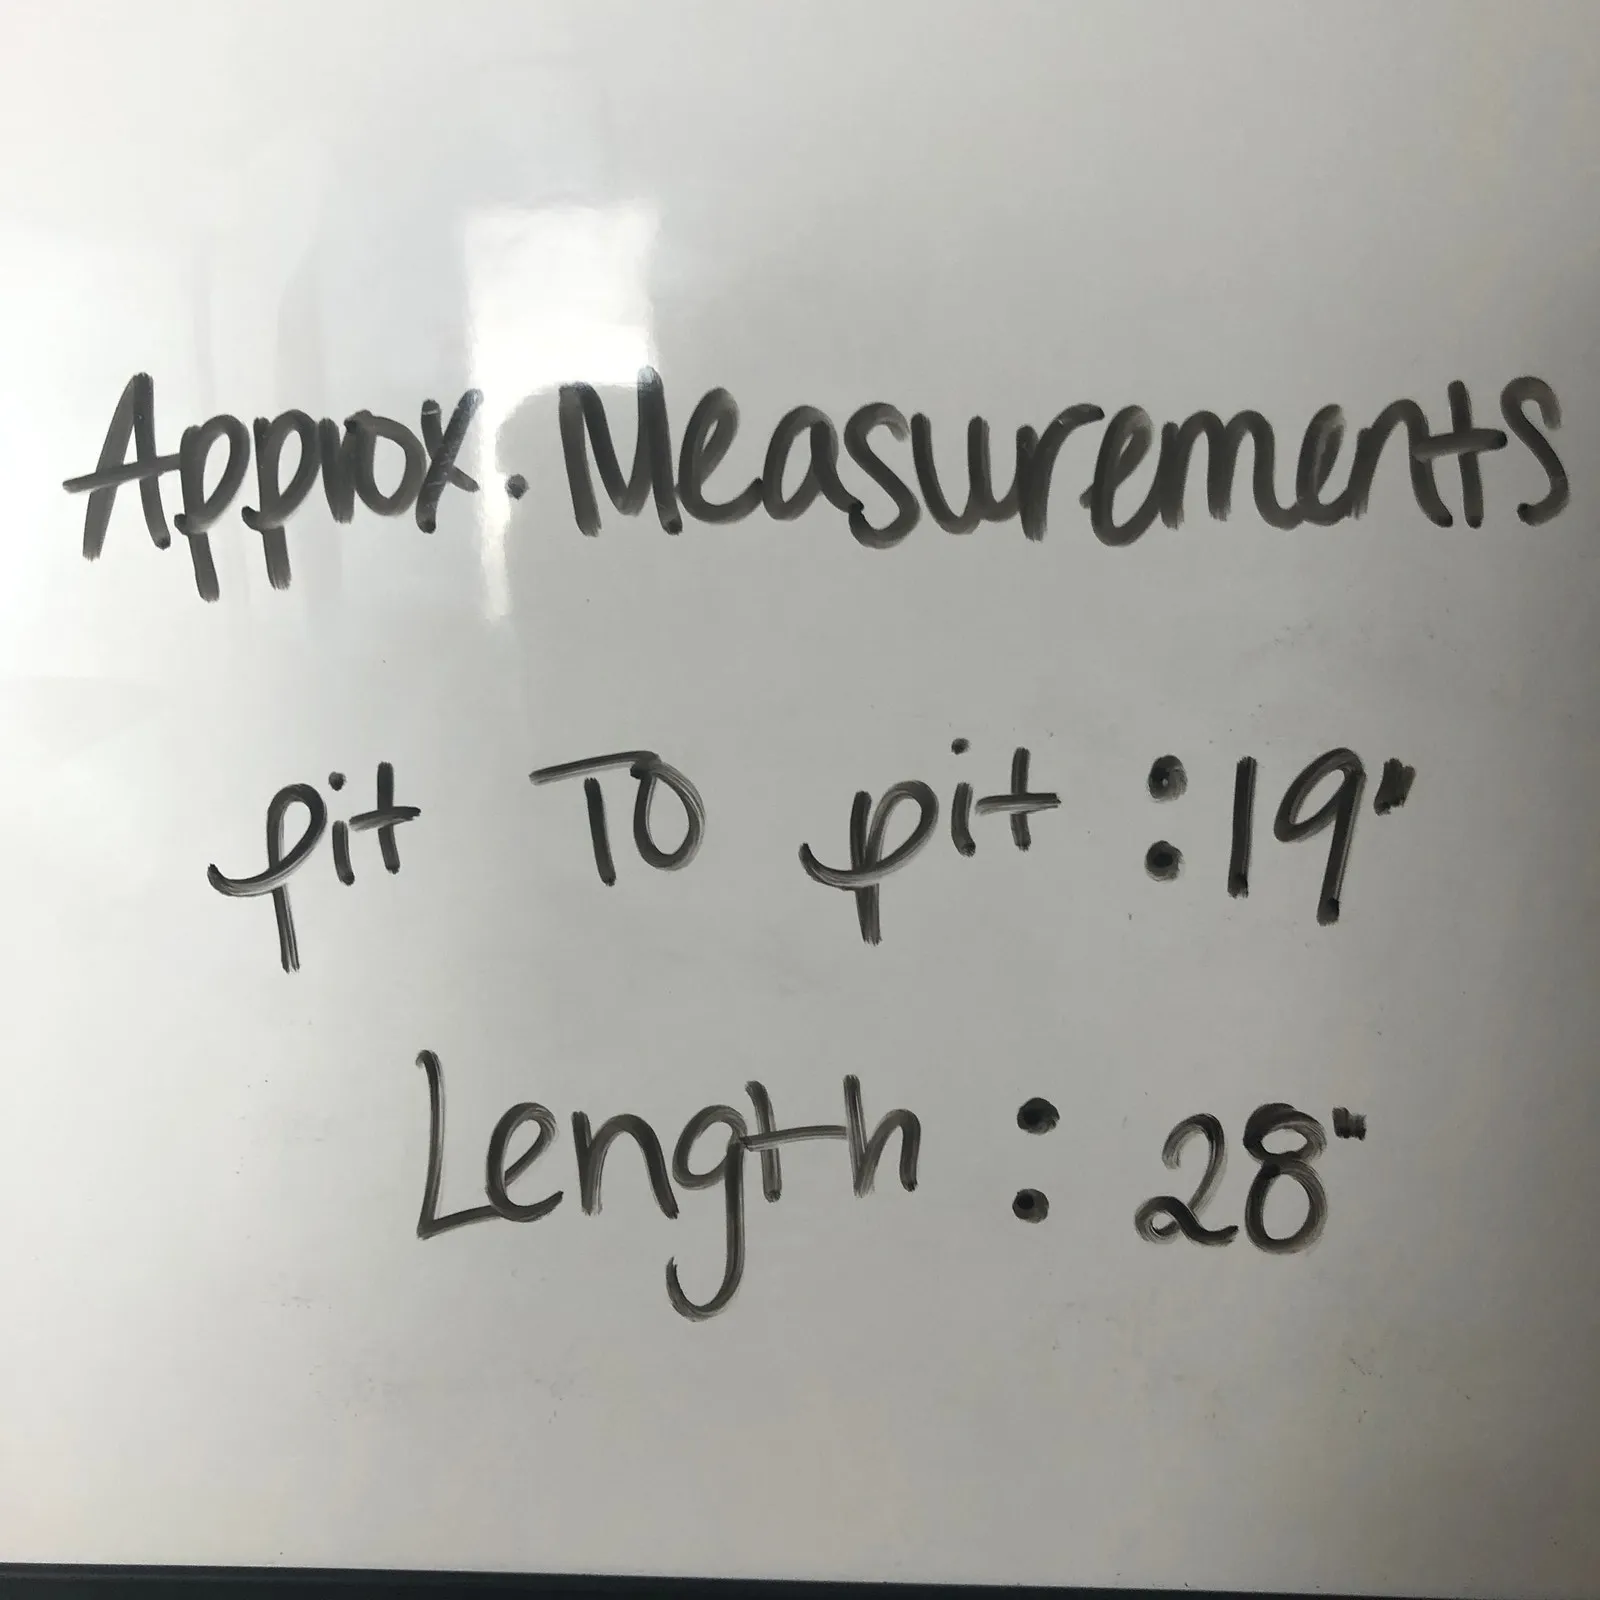 Approx. Measurements
pit To pit : 19"
Length : 28"